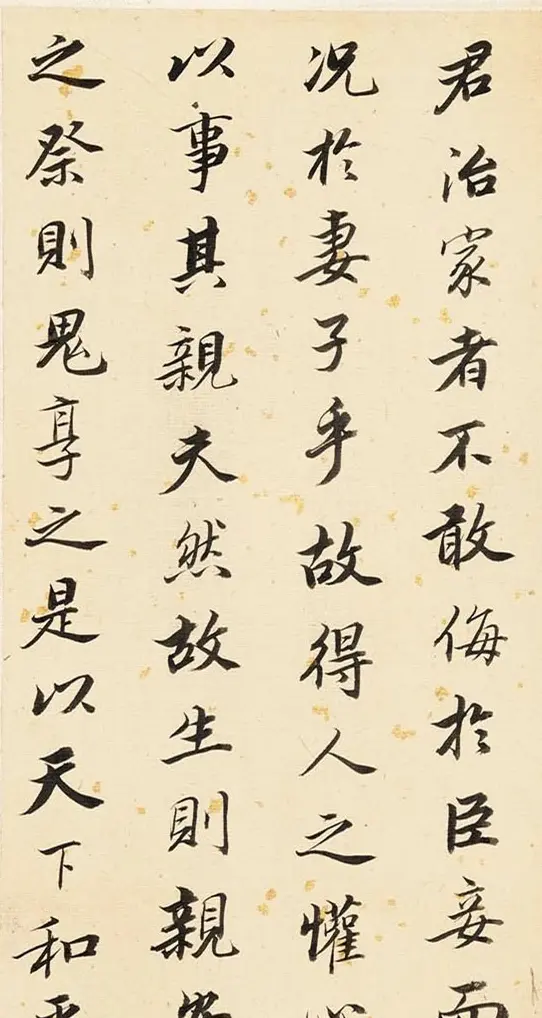 君治家者不敢侮於臣妾而
況於妻子乎故得人之懽心
以事其親夫然故生則親安
之祭則鬼享之是以天下和平